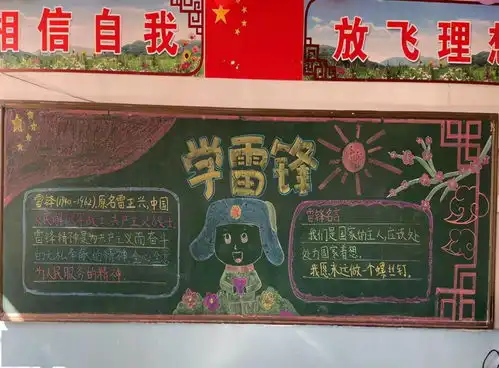 相信自我
放飞理想
学雷锋
雷锋(1940-1962),原名雷正兴,中国
人民解放军战士,共产主义战士,
雷锋精神是为共产主义而奋斗
的无私奉献的精神,全心全意
为人民服务的精神。
雷锋名言
我们是国家的主人,应该处
处为国家着想。
我愿永远做一个螺丝钉。